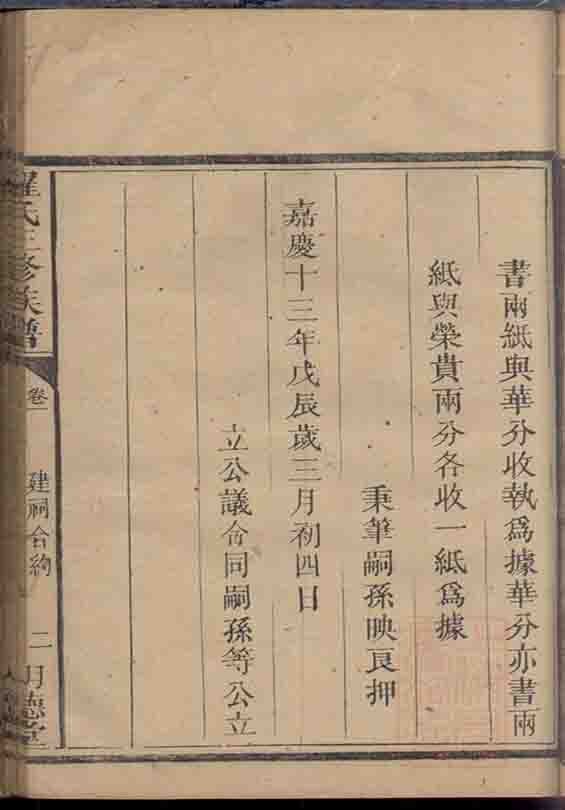 書兩紙與華分收執為據華分亦書兩
紙與榮貴兩分各收一紙為據
秉筆嗣孫映良押
嘉慶十三年戊辰歲三月初四日
立公議合同嗣孫等公立
羅氏三修族譜
卷
建祠合約
二
明德堂